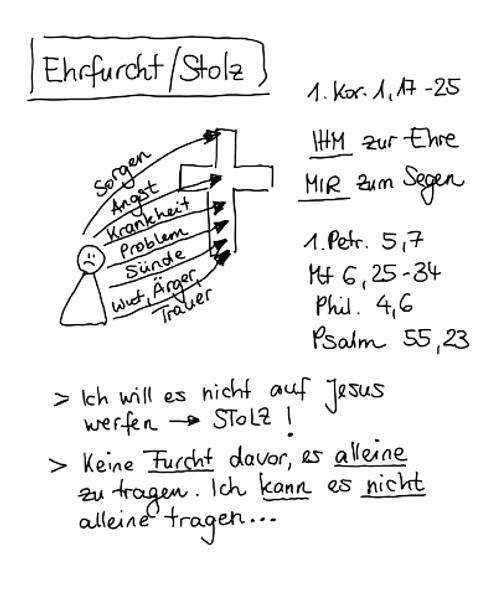 Ehrfurcht/Stolz
1. Kor. 1, 17-25
IHM zur Ehre
MIR zum Segen
1. Petr. 5,7
Mt 6, 25-34
Phil. 4,6
Psalm 55,23
Sorgen
Angst
Krankheit
Problem
Sünde
Wut, Ärger,
Trauer
> Ich will es nicht auf Jesus
werfen → STOLZ!
> Keine Furcht davor, es alleine
zu tragen. Ich kann es nicht
alleine tragen...